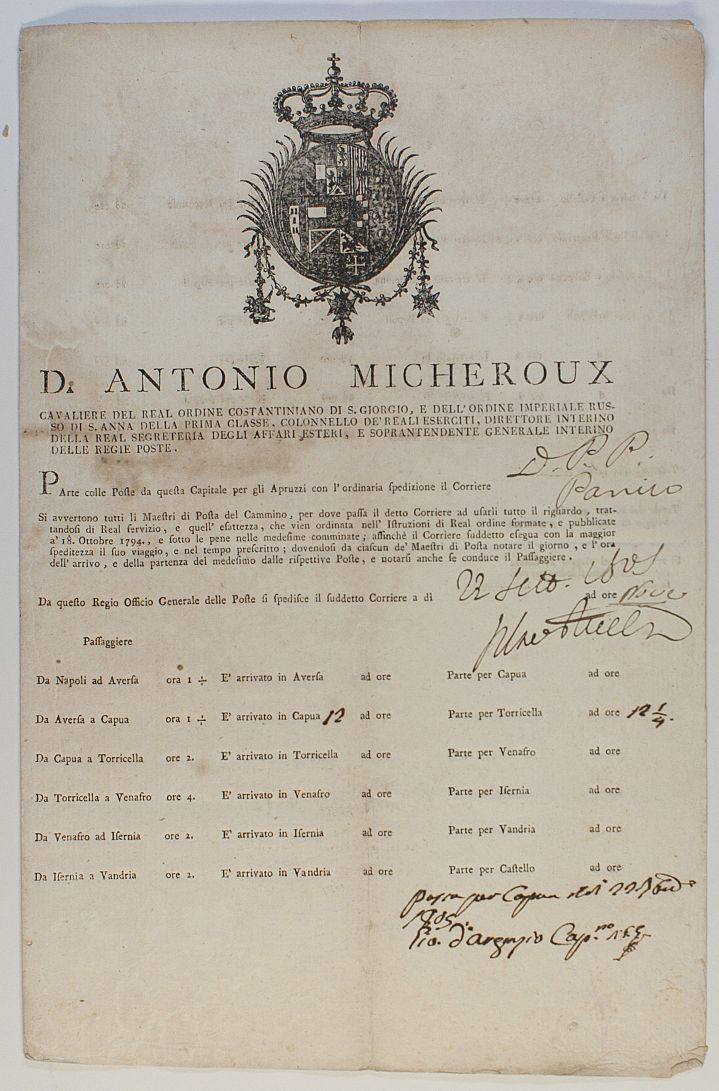 D. ANTONIO MICHEROUX
CAVALIERE DEL REAL ORDINE COSTANTINIANO DI S. GIORGIO, E DELL' ORDINE IMPERIALE RUS-
SO DI S. ANNA DELLA PRIMA CLASSE, COLONNELLO DE' REALI ESERCITI, DIRETTORE INTERINO
DELLA REAL SEGRETERIA DEGLI AFFARI ESTERI, E SOPRANTENDENTE GENERALE INTERINO
DELLE REGIE POSTE.
D. P. P.
PArte colle Poste da questa Capitale per gli Apruzzi con l' ordinaria spedizione il Corriere
Panico
Si avvertono tutti li Maestri di Posta del Cammino, per dove passa il detto Corriere ad usarli tutto il riguardo, trat-
tandosi di Real servizio, e quell' esattezza, che vien ordinata nell' Istruzioni di Real ordine formate, e pubblicate
a' 18. Ottobre 1794., e sotto le pene nelle medesime comminate; affinchè il Corriere suddetto esegua con la maggior
speditezza il suo viaggio, e nel tempo prescritto; dovendosi da ciascun de' Maestri di Posta notare il giorno, e l' ora
dell' arrivo, e della partenza del medesimo dalle rispettive Poste, e notarsi anche se conduce il Passaggiere.
Da questo Regio Officio Generale delle Poste si spedisce il suddetto Corriere a dì 22 Sett. 1805 ad ore nove
Passaggiere
Da Napoli ad Aversa ora 1 ÷ E' arrivato in Aversa ad ore Parte per Capua ad ore
Da Aversa a Capua ora 1 ÷ E' arrivato in Capua 12 ad ore Parte per Torricella ad ore 12 1/4.
Da Capua a Torricella ore 2. E' arrivato in Torricella ad ore Parte per Venafro ad ore
Da Torricella a Venafro ore 4. E' arrivato in Venafro ad ore Parte per Isernia ad ore
Da Venafro ad Isernia ore 2. E' arrivato in Isernia ad ore Parte per Vandria ad ore
Da Isernia a Vandria ore 2. E' arrivato in Vandria ad ore Parte per Castello ad ore
Passa per Capua 22
1805.
Gio. d'